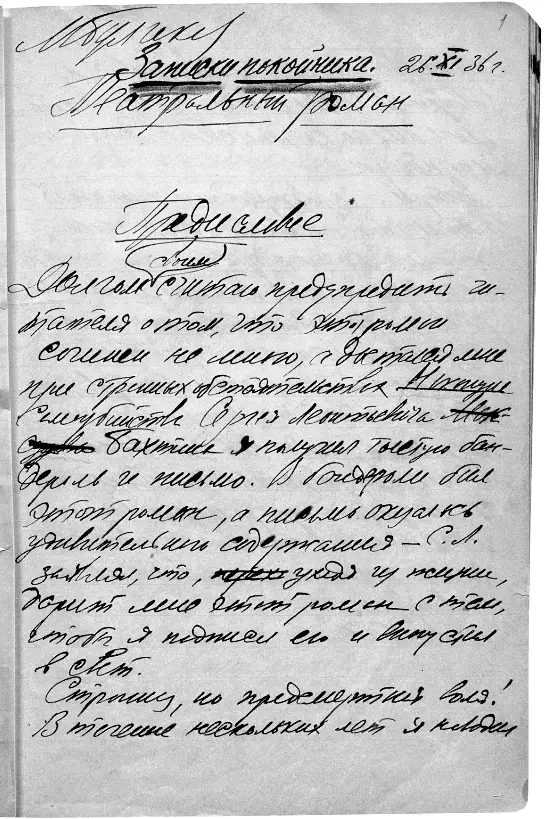 1
М Булгаков
Записки покойника. 26.XI.36 г.
Театральный роман
Предисловие
Долгом своим считаю предупредить чи-
тателя о том, что этот роман
сочинен не мною, а достался мне
при странных обстоятельствах. Накануне
самоубийства Сергея Леонтьевича
Бахтина я получил толстую бан-
дероль и письмо. В бандероли был
этот роман, а письмо оказалось
удивительного содержания – С. Л.
заявлял, что, уходя из жизни,
дарит мне этот роман с тем,
чтобы я подписал его и выпустил
в свет.
Странная, но предсмертная воля!
В течение нескольких лет я наводил